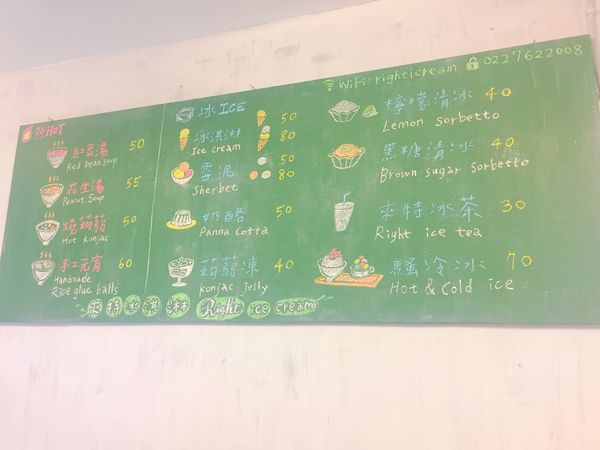 WiFi:righticream 0227622008
熱HOT
紅豆湯 50
Red bean soup
花生湯 55
Peanut Soup
燒蒟蒻 50
Hot konjac
手工元宵 60
Handmade
Rice glue balls
冰ICE
冰淇淋 50
Ice cream 80
雪泥 50
Sherbet 80
奶酪 50
Panna Cotta
蒟蒻凍 40
konjac jelly
檸檬清冰 40
Lemon sorbetto
黑糖清冰 40
Brown sugar sorbetto
來特冰茶 30
Right ice tea
騷冷冰 70
Hot & Cold ice
來特冰淇淋 Right ice cream